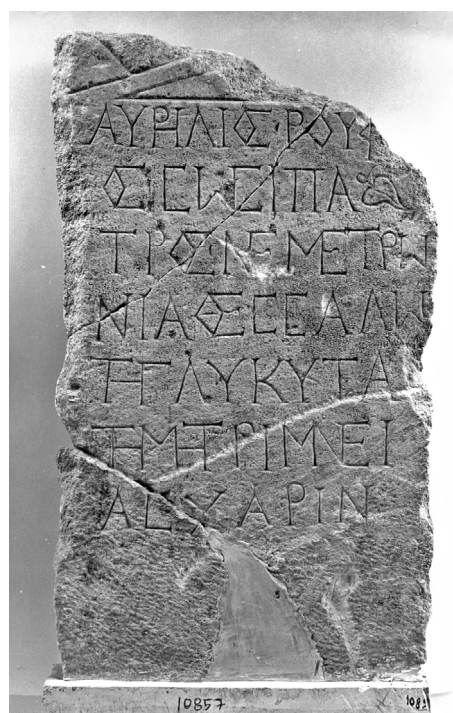 ΑΥΡΗΛΙΟΣ ΡΟΥΦ
ΟΣ ΚΕ ΣΩΣΙΠΑ
ΤΡΟΣ ΚΕ ΜΕΤΡΩ
ΝΙΑ ΘΕΣΣΑΛΩ
ΤΗ ΓΛΥΚΥΤΑ
ΤΗ ΜΗΤΡΙ ΜΝΕΙ
ΑΣ ΧΑΡΙΝ
10857